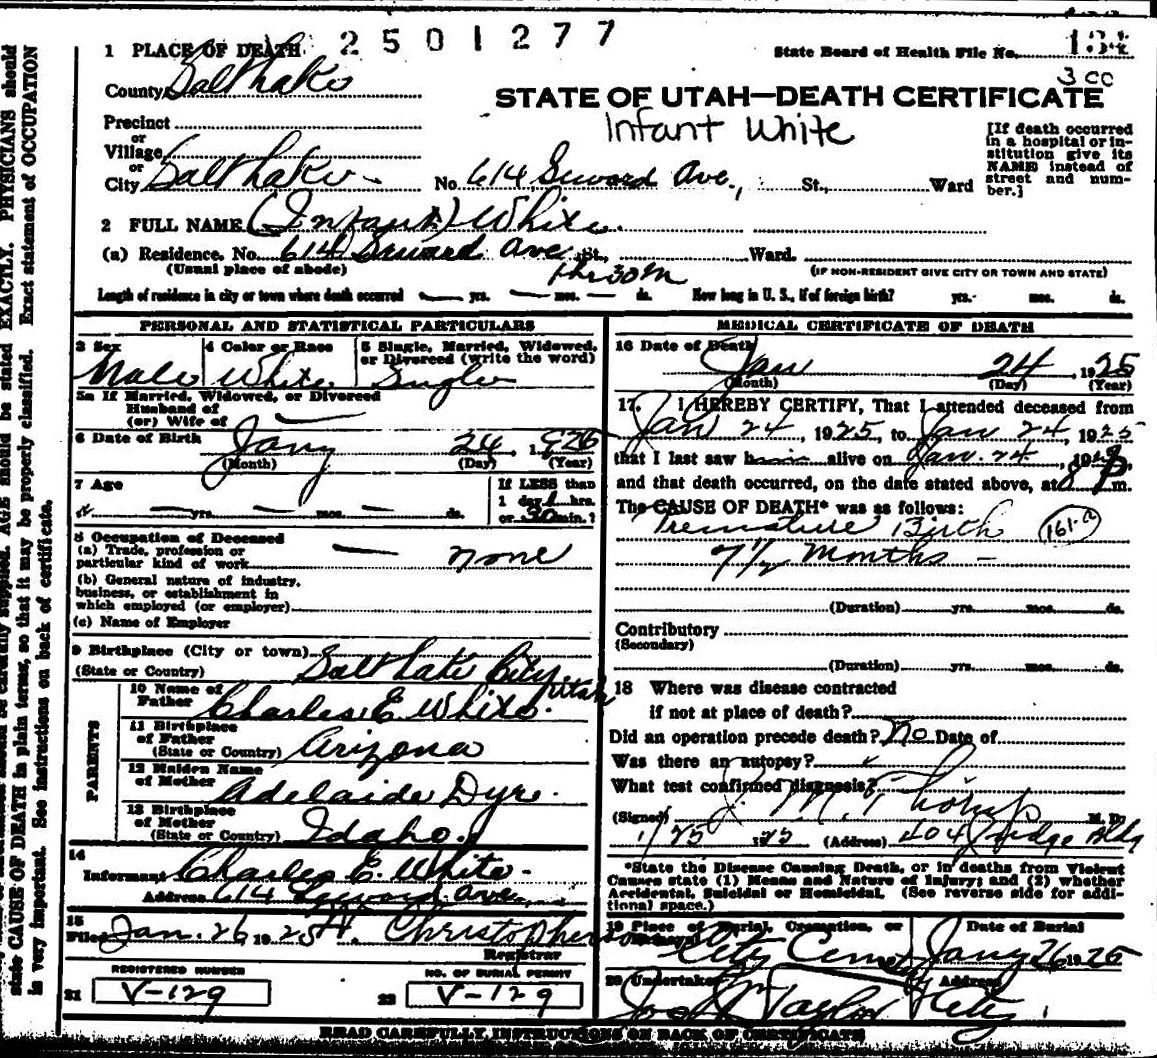 2501277
1 PLACE OF DEATH State Board of Health File No. 134
3 CC
County Salt Lake STATE OF UTAH—DEATH CERTIFICATE
Infant White
Precinct
or
Village
or
City Salt Lake No. 614 Seward Ave., St., Ward
[If death occurred
in a hospital or in-
stitution give its
NAME instead of
street and num-
ber.]
2 FULL NAME (Infant) White
(a) Residence. No. 614 Seward Ave. St., Ward.
(Usual place of abode) (IF NON-RESIDENT GIVE CITY OR TOWN AND STATE)
Length of residence in city or town where death occurred — yrs. — mos. — ds. How long in U. S., if of foreign birth? yrs. mos. ds.
PERSONAL AND STATISTICAL PARTICULARS
3 Sex 4 Color or Race 5 Single, Married, Widowed,
or Divorced (write the word)
Male White Single
5a If Married, Widowed, or Divorced
Husband of
(or) Wife of —
6 Date of Birth Jany 24, 1925
(Month) (Day) (Year)
7 Age If LESS than
1 day hrs.
— yrs. — mos. — ds. or 30 min.?
8 Occupation of Deceased
(a) Trade, profession or
particular kind of work — none
(b) General nature of industry,
business, or establishment in
which employed (or employer)
(c) Name of Employer
9 Birthplace (City or town) Salt Lake City,
(State or Country) Utah
PARENTS
10 Name of
Father Charles E. White.
11 Birthplace
of Father
(State or Country) Arizona
12 Maiden Name
of Mother Adelaide Dyre.
13 Birthplace
of Mother
(State or Country) Idaho.
14
Informant Charles E. White.
Address 614 Seward Ave.
15
Filed Jan. 26 1925 Christopherson
Registrar
REGISTERED NUMBER NO. OF BURIAL PERMIT
21 V-129 22 V-129
MEDICAL CERTIFICATE OF DEATH
16 Date of Death Jan 24, 1925
(Month) (Day) (Year)
17. I HEREBY CERTIFY, That I attended deceased from
Jan 24, 1925, to Jan 24, 1925
that I last saw him alive on Jan. 24, 192
and that death occurred, on the date stated above, at 8 P m.
The CAUSE OF DEATH* was as follows:
Premature Birth 161-a
7 1/2 months —
(Duration) yrs. mos. ds.
Contributory
(Secondary)
(Duration) yrs. mos. ds.
18 Where was disease contracted
if not at place of death?
Did an operation precede death? No Date of
Was there an autopsy?
What test confirmed diagnosis?
(Signed) M. D.
1/25 1925 (Address) 404 Judge Bldg
*State the Disease Causing Death, or in deaths from Violent
Causes state (1) Means and Nature of Injury; and (2) whether
Accidental, Suicidal or Homicidal. (See reverse side for addi-
tional space.)
19 Place of Burial, Cremation, or Date of Burial
City Cemetery Jany 26 1925
20 Undertaker Address
Taylor City
READ CAREFULLY INSTRUCTIONS ON BACK OF CERTIFICATE
EXACTLY. PHYSICIANS should
state CAUSE OF DEATH in plain terms, so that it may be properly classified. Exact statement of OCCUPATION
is very important. See instructions on back of certificate.